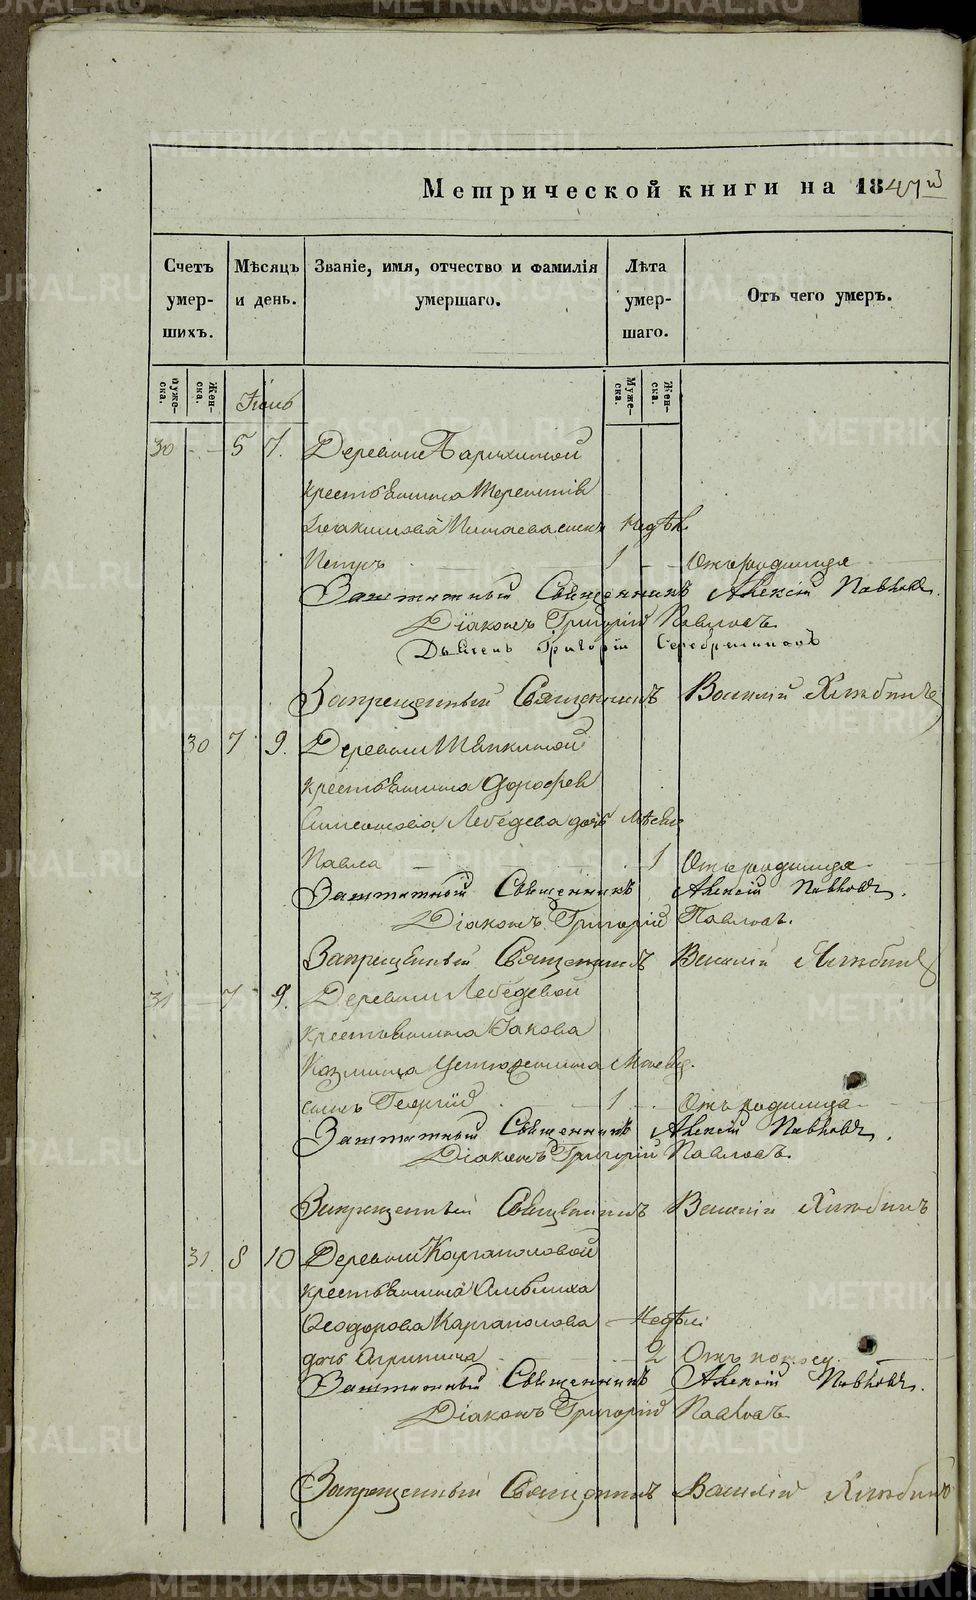 Метрической книги на 1847й
Счетъ умер- шихъ.
Мѣсяцъ и день.
Званіе, имя, отчество и фамилія умершаго.
Лѣта умер- шаго.
Отъ чего умеръ.
Муже- ска.
Жен- ска.
Муже- ска.
Жен- ска.
30 5 7. Деревни
крестьянина Терентія
сынъ Недѣл.
Петръ 1 Отъ родимца
Заштатный Священникъ Алексій Павловъ.
Діаконъ Григорій Павловъ.
Дьячекъ Григорій Серебренниковъ
Запрещенный Священникъ Василій Хлыбинъ
30 7 9. Деревни
крестьянина Дорофея
Симеонова Лебедева дочь Мѣсяц
Павла 1 Отъ родимца
Заштатный Священникъ Алексій Павловъ.
Діаконъ Григорій Павловъ.
Запрещенный Священникъ Василій Хлыбинъ
31 7 9. Деревни Лебедевой
крестьянина Іакова
Козмина Устюжанина Мѣсяц.
сынъ Георгій 1 Отъ родимца
Заштатный Священникъ Алексій Павловъ.
Діаконъ Григорій Павловъ.
Запрещенный Священникъ Василій Хлыбинъ
31. 8 10 Деревни Каргаполовой
крестьянина
Феодорова Каргаполова Недѣли
дочь Агрипина 2 Отъ поносу
Заштатный Священникъ Алексій Павловъ.
Діаконъ Григорій Павловъ
Запрещенный Священникъ Василій Хлыбинъ
METRIKI.GASO-URAL.RU